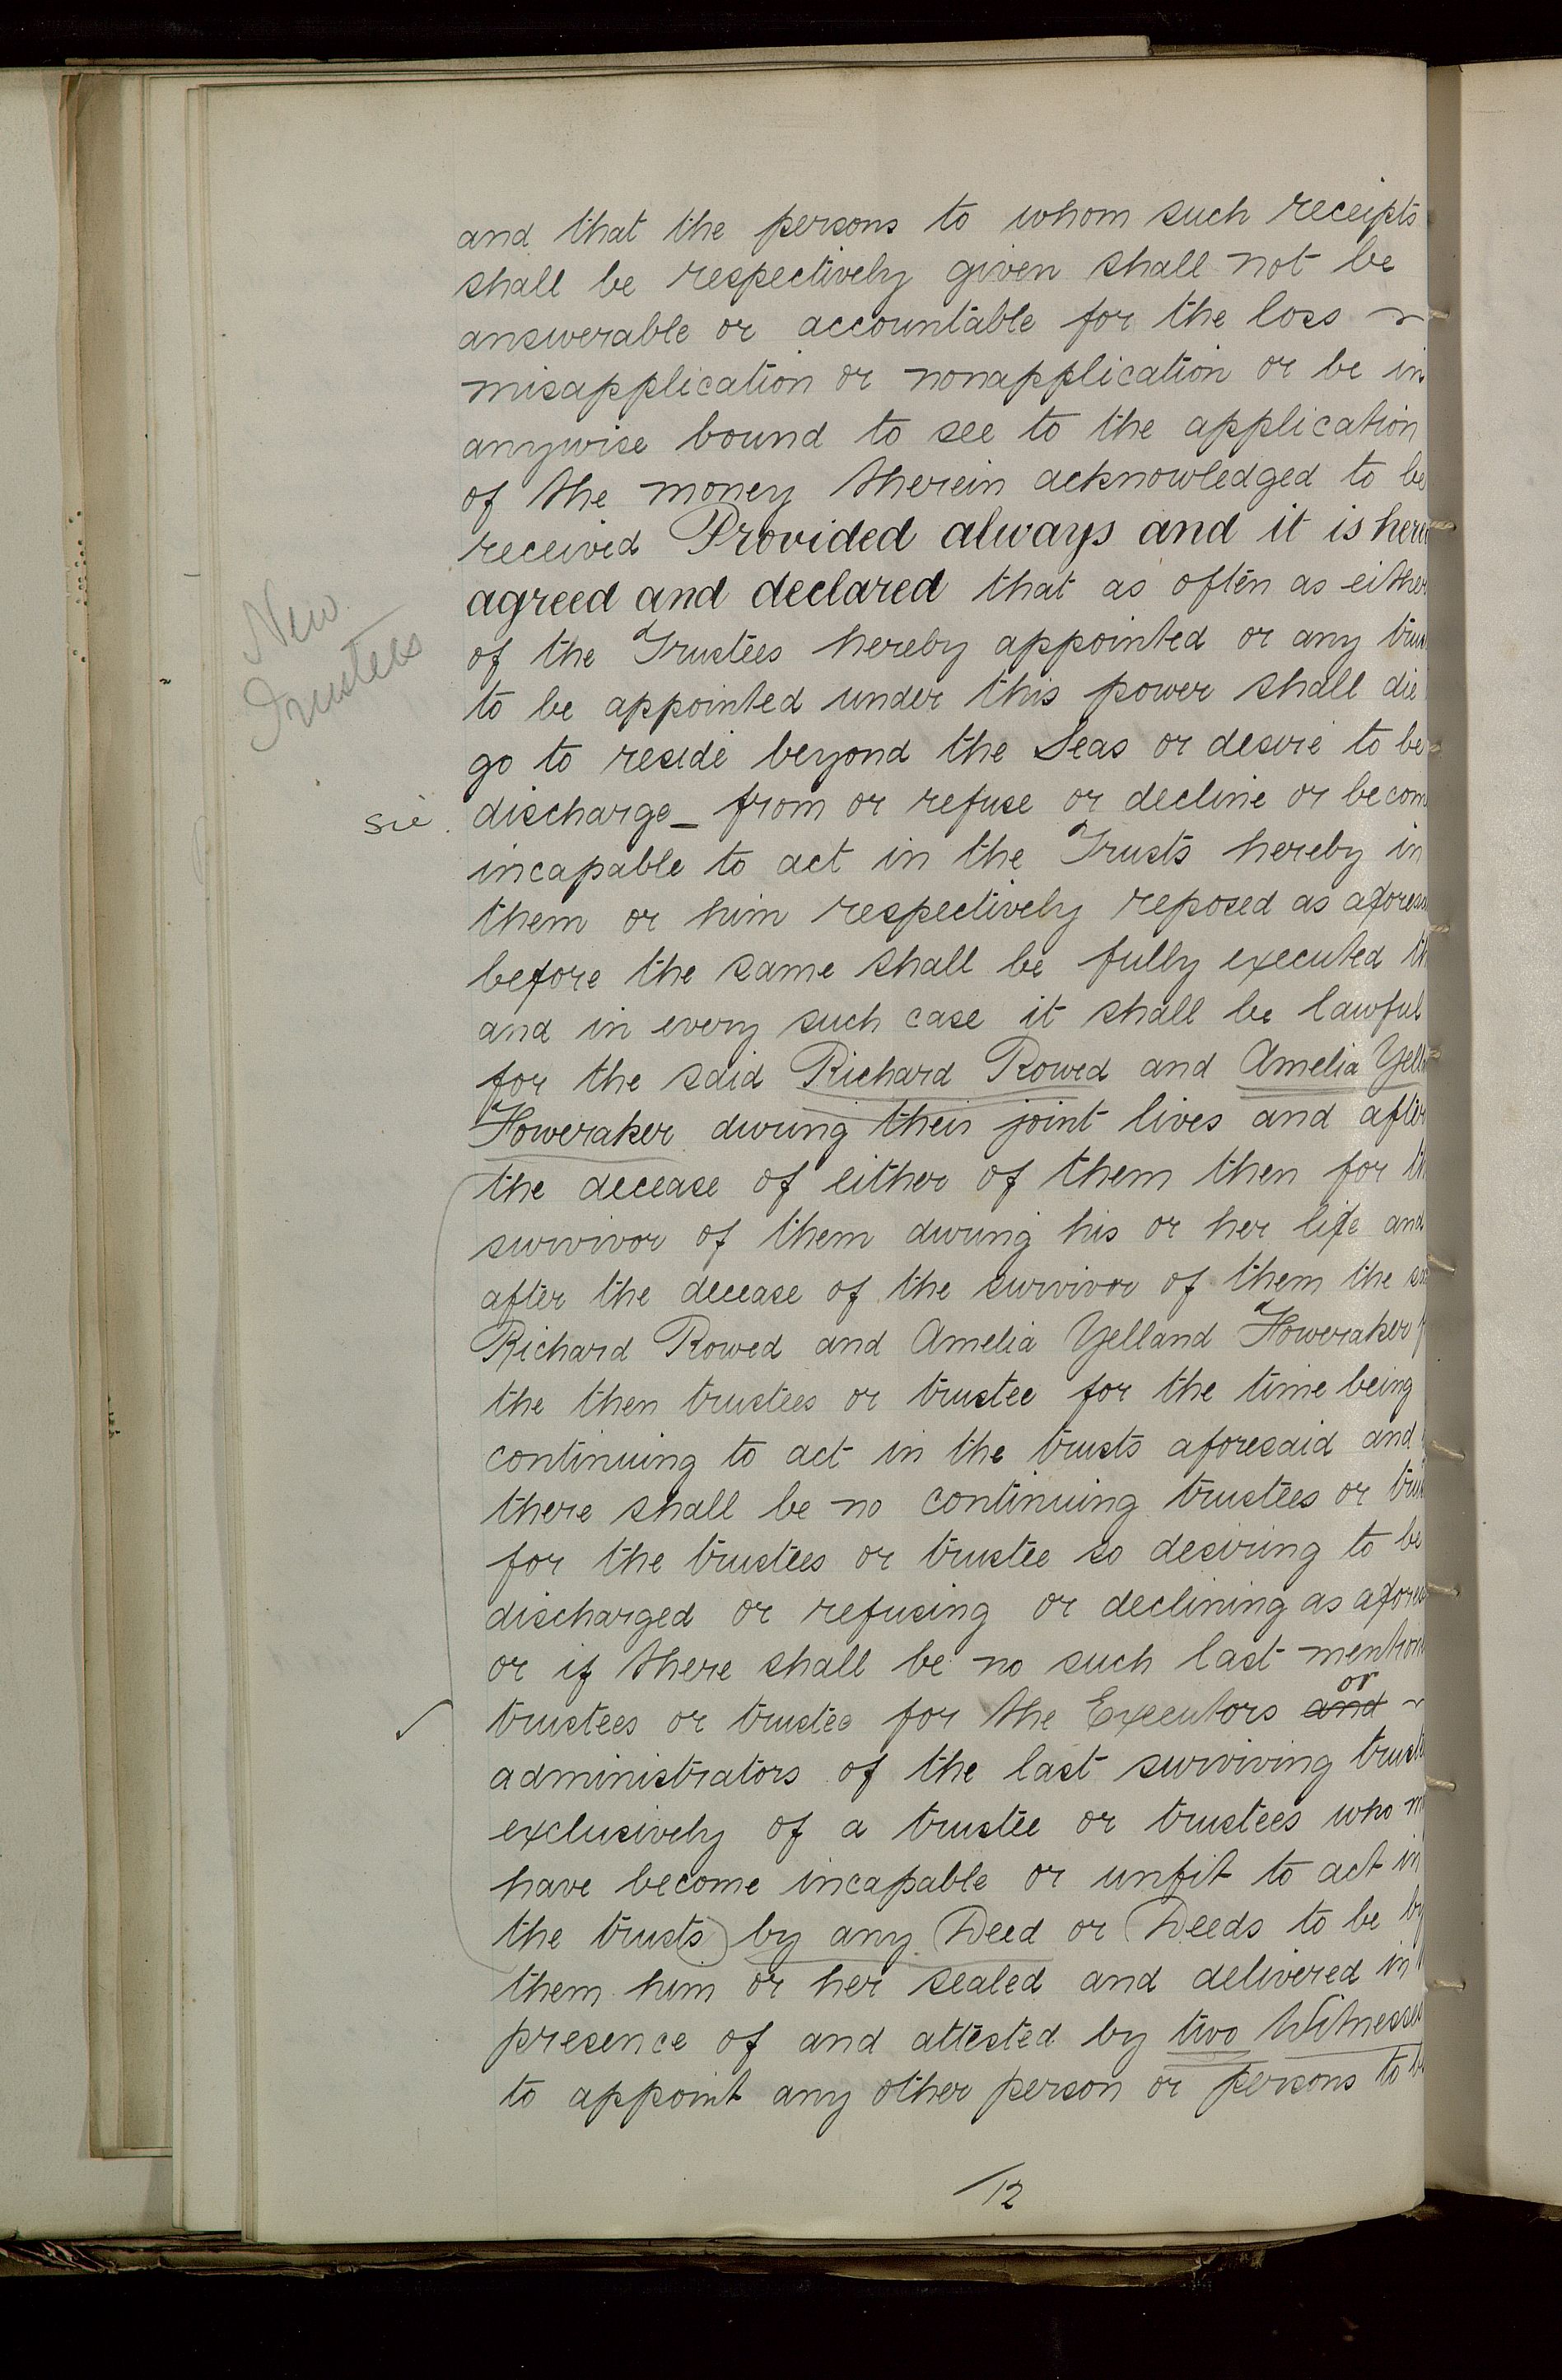 and that the persons to whom such receipts
shall be respectively given shall not be
answerable or accountable for the loss
misapplication or nonapplication or be in
anywise bound to see to the application
of the money therein acknowledged to be
received Provided always and it is here
agreed and declared that as often as either
of the Trustees hereby appointed or any trus
to be appointed under this power shall die
go to reside beyond the Seas or desire to be
discharge_ from or refuse or decline or becom
incapable to act in the Trusts hereby in
them or him respectively reposed as aforesa
before the same shall be fully executed th
and in every such case it shall be lawful
for the said Richard Rowed and Amelia Yell
Foweraker during their joint lives and after
the decease of either of them then for th
survivor of them during his or her life and
after the decease of the survivor of them the
Richard Rowed and Amelia Yelland Foweraker
the then trustees or trustee for the time being
continuing to act in the trusts aforesaid and
there shall be no continuing trustees or trus
for the trustees or trustee so desiring to be
discharged or refusing or declining as afores
or if there shall be no such last mention
trustees or trustee for the Executors and or
administrators of the last surviving truste
exclusively of a trustee or trustees who m
have become incapable or unfit to act in
the trusts) by any Deed or Deeds to be by
them him or her sealed and delivered in
presence of and attested by two Witnesses
to appoint any other person or persons to b
New
Trustees
sic
/12